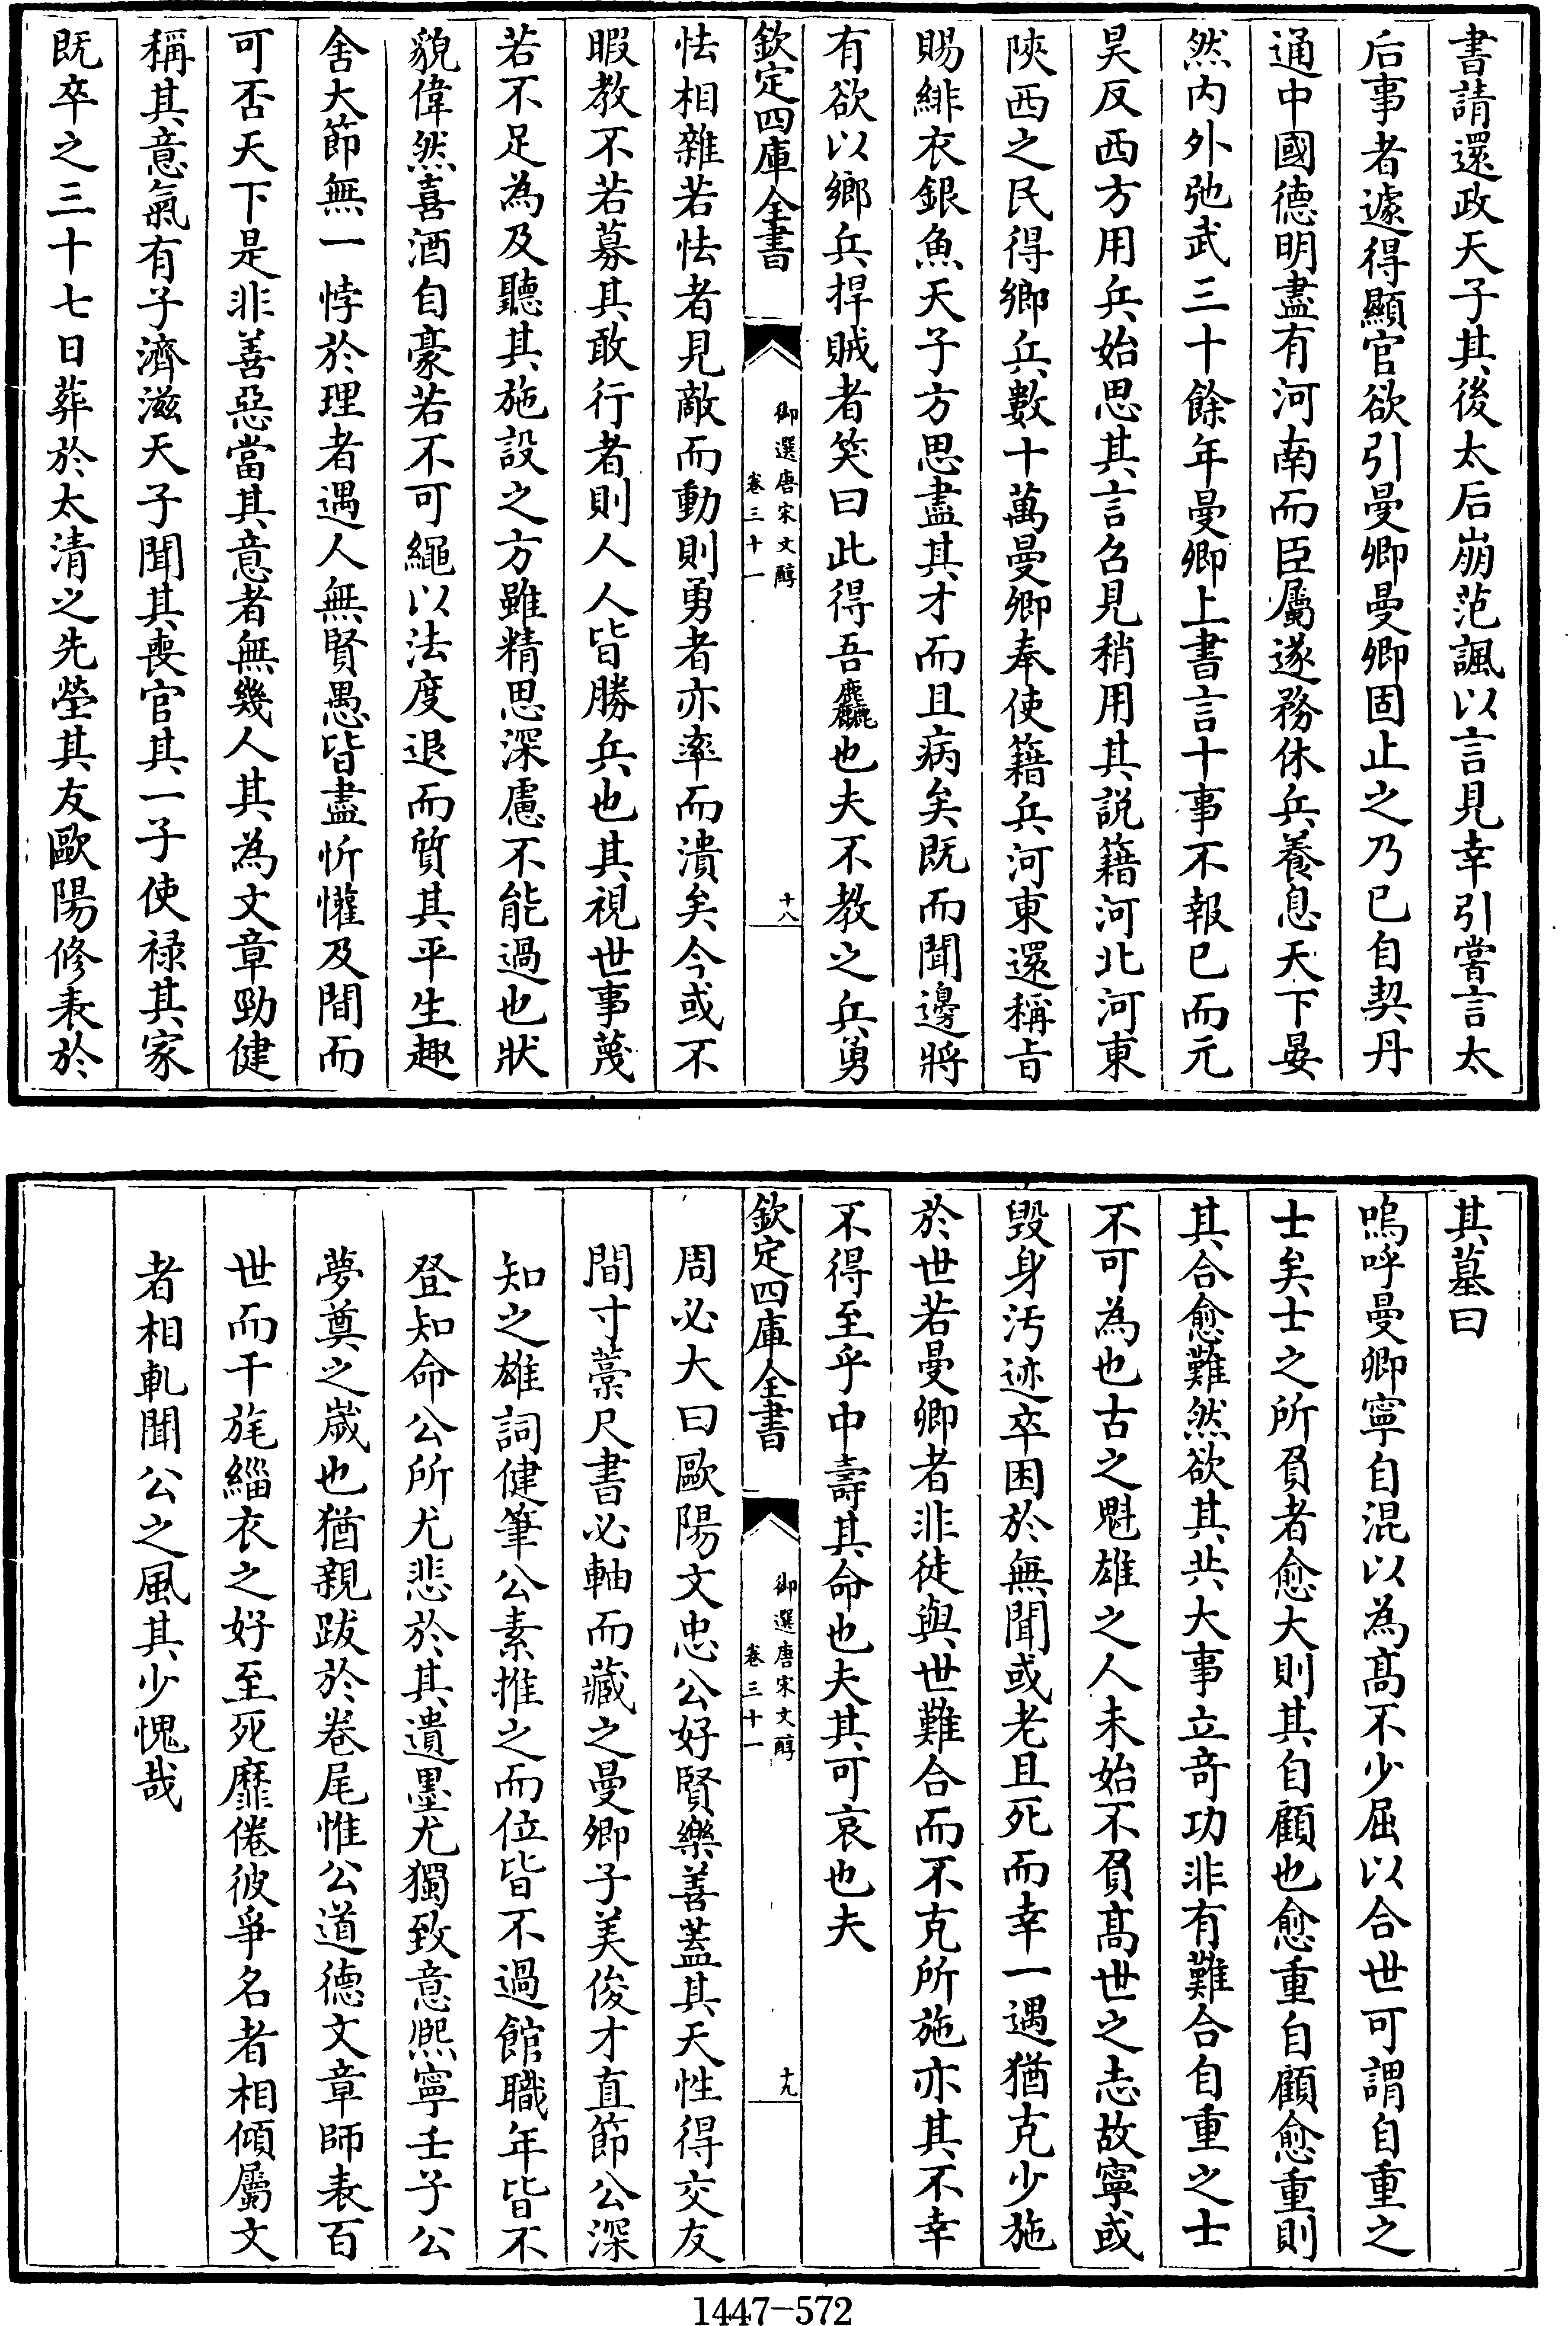 書請還政天子其後太后崩范諷以言見幸引嘗言太
后事者遽得顯官欲引曼卿曼卿固止之乃已自契丹
通中國德明盡有河南而臣屬遂務休兵養息天下晏
然内外弛武三十餘年曼卿上書言十事不報已而元
昊反西方用兵始思其言召見稍用其説籍河北河東
陜西之民得鄉兵數十萬曼卿奉使籍兵河東還稱㫖
賜緋衣銀魚天子方思盡其才而且病矣既而聞邊將
有欲以鄉兵捍賊者笑曰此得吾麤也夫不教之兵勇
欽定四庫全書
御選唐宋文醇
卷三十一
十八
怯相雜若怯者見敵而動則勇者亦率而潰矣今或不
暇教不若募其敢行者則人人皆勝兵也其視世事蔑
若不足為及聽其施設之方雖精思深慮不能過也狀
貌偉然喜酒自豪若不可繩以法度退而質其平生趣
舍大節無一悖於理者遇人無賢愚皆盡忻懽及間而
可否天下是非善惡當其意者無幾人其為文章勁健
稱其意氣有子濟滋天子聞其喪官其一子使禄其家
既卒之三十七日葬於太清之先塋其友歐陽修表於
其墓曰
嗚呼曼卿寧自混以為髙不少屈以合世可謂自重之
士矣士之所負者愈大則其自顧也愈重自顧愈重則
其合愈難然欲其共大事立竒功非有難合自重之士
不可為也古之魁雄之人未始不負髙世之志故寧或
毁身汚迹卒困於無聞或老且死而幸一遇猶克少施
於世若曼卿者非徒與世難合而不克所施亦其不幸
不得至乎中壽其命也夫其可哀也夫
欽定四庫全書
御選唐宋文醇
卷三十一
十九
周必大曰歐陽文忠公好賢樂善葢其天性得交友
間寸藁尺書必軸而藏之曼卿子美俊才直節公深
知之雄詞健筆公素推之而位皆不過館職年皆不
登知命公所尤悲於其遺墨尤獨致意熈寧壬子公
夢奠之嵗也猶親跋於卷尾惟公道德文章師表百
世而干旄緇衣之好至死靡倦彼爭名者相傾屬文
者相軋聞公之風其少愧哉
1447-572